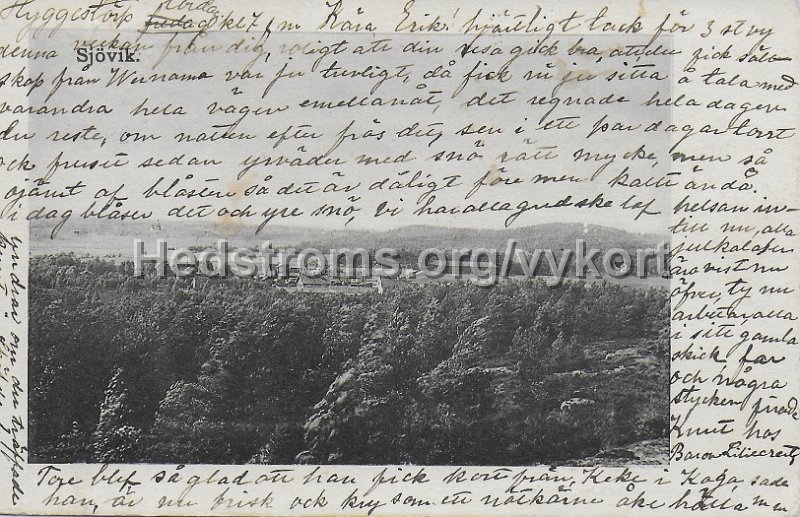 Hyggestorp lörda
fredag kl 7 f m Kära Erik! hjärtligt tack för 3 st vy
denna veckan från dig, roligt att din resa gick bra, att du fick säll-
Sjövik.
skap från Wernamo var ju trevligt, då fick ni ju sitta å tala med
varandra hela vägen emellanåt, det regnade hela dagen
du reste, om natten efter frös det, sen i ett par dagar torrt
ock fruset sedan yrväder med snö rätt mycke, men så
ojämt af blåsten så det är dåligt före men kallt ändå.
i dag blåser det och yre snö, vi har alla guds ke lof helsan in-
till nu, alla
julkalafen
äro vist nu
öfver, ty nu
arbetar alla
i sitt gamla
skick far
och några
stycken
Knut hos
Baron Liliecreutz
Hedstroms.org/vykort
undrar om du träffade
Tore blef så glad att han fick kort från Keke i Kaga, sade
han, är nu frisk ock kry som ett nötkärne åke kälka